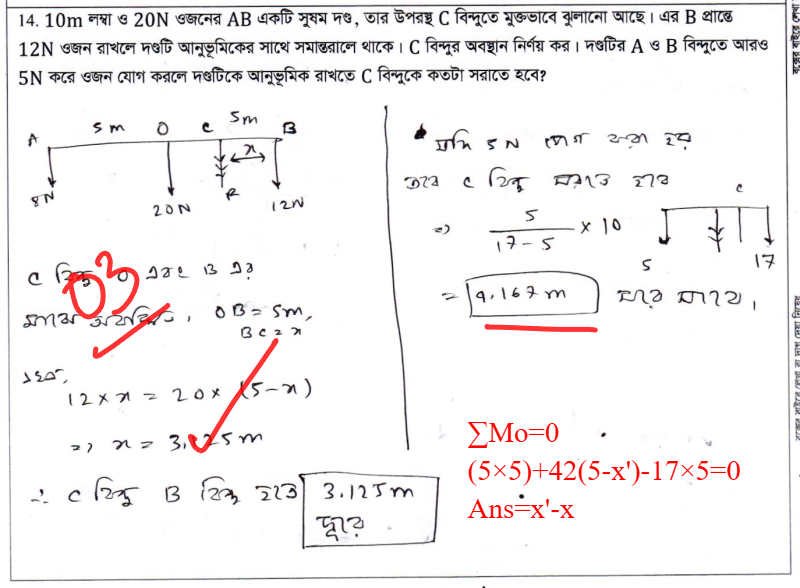 14. 10m লম্বা ও 20N ওজনের AB একটি সুষম দণ্ড, তার উপরস্থ C বিন্দুতে মুক্তভাবে ঝুলানো আছে। এর B প্রান্তে
12N ওজন রাখলে দণ্ডটি আনুভূমিকের সাথে সমান্তরালে থাকে। C বিন্দুর অবস্থান নির্ণয় কর। দণ্ডটির A ও B বিন্দুতে আরও
5N করে ওজন যোগ করলে দণ্ডটিকে আনুভূমিক রাখতে C বিন্দুকে কতটা সরাতে হবে?
A 5m O C 5m B
x
8N 20N R 12N
C বিন্দু O এবং B এর
মাঝে অবস্থিত, OB = 5m,
BC = x
03
এখন,
12 × x = 20 × (5-x)
=> x = 3.125m
∴ C বিন্দু B বিন্দু হতে 3.125m
দূরে
যদি 5N যোগ করা হয়
তবে C বিন্দু সরাতে হবে
=> 5/17-5 × 10
C
5 17
= 4.167m সরে যাবে।
∑Mo=0
(5×5)+42(5-x')-17×5=0
Ans=x'-x